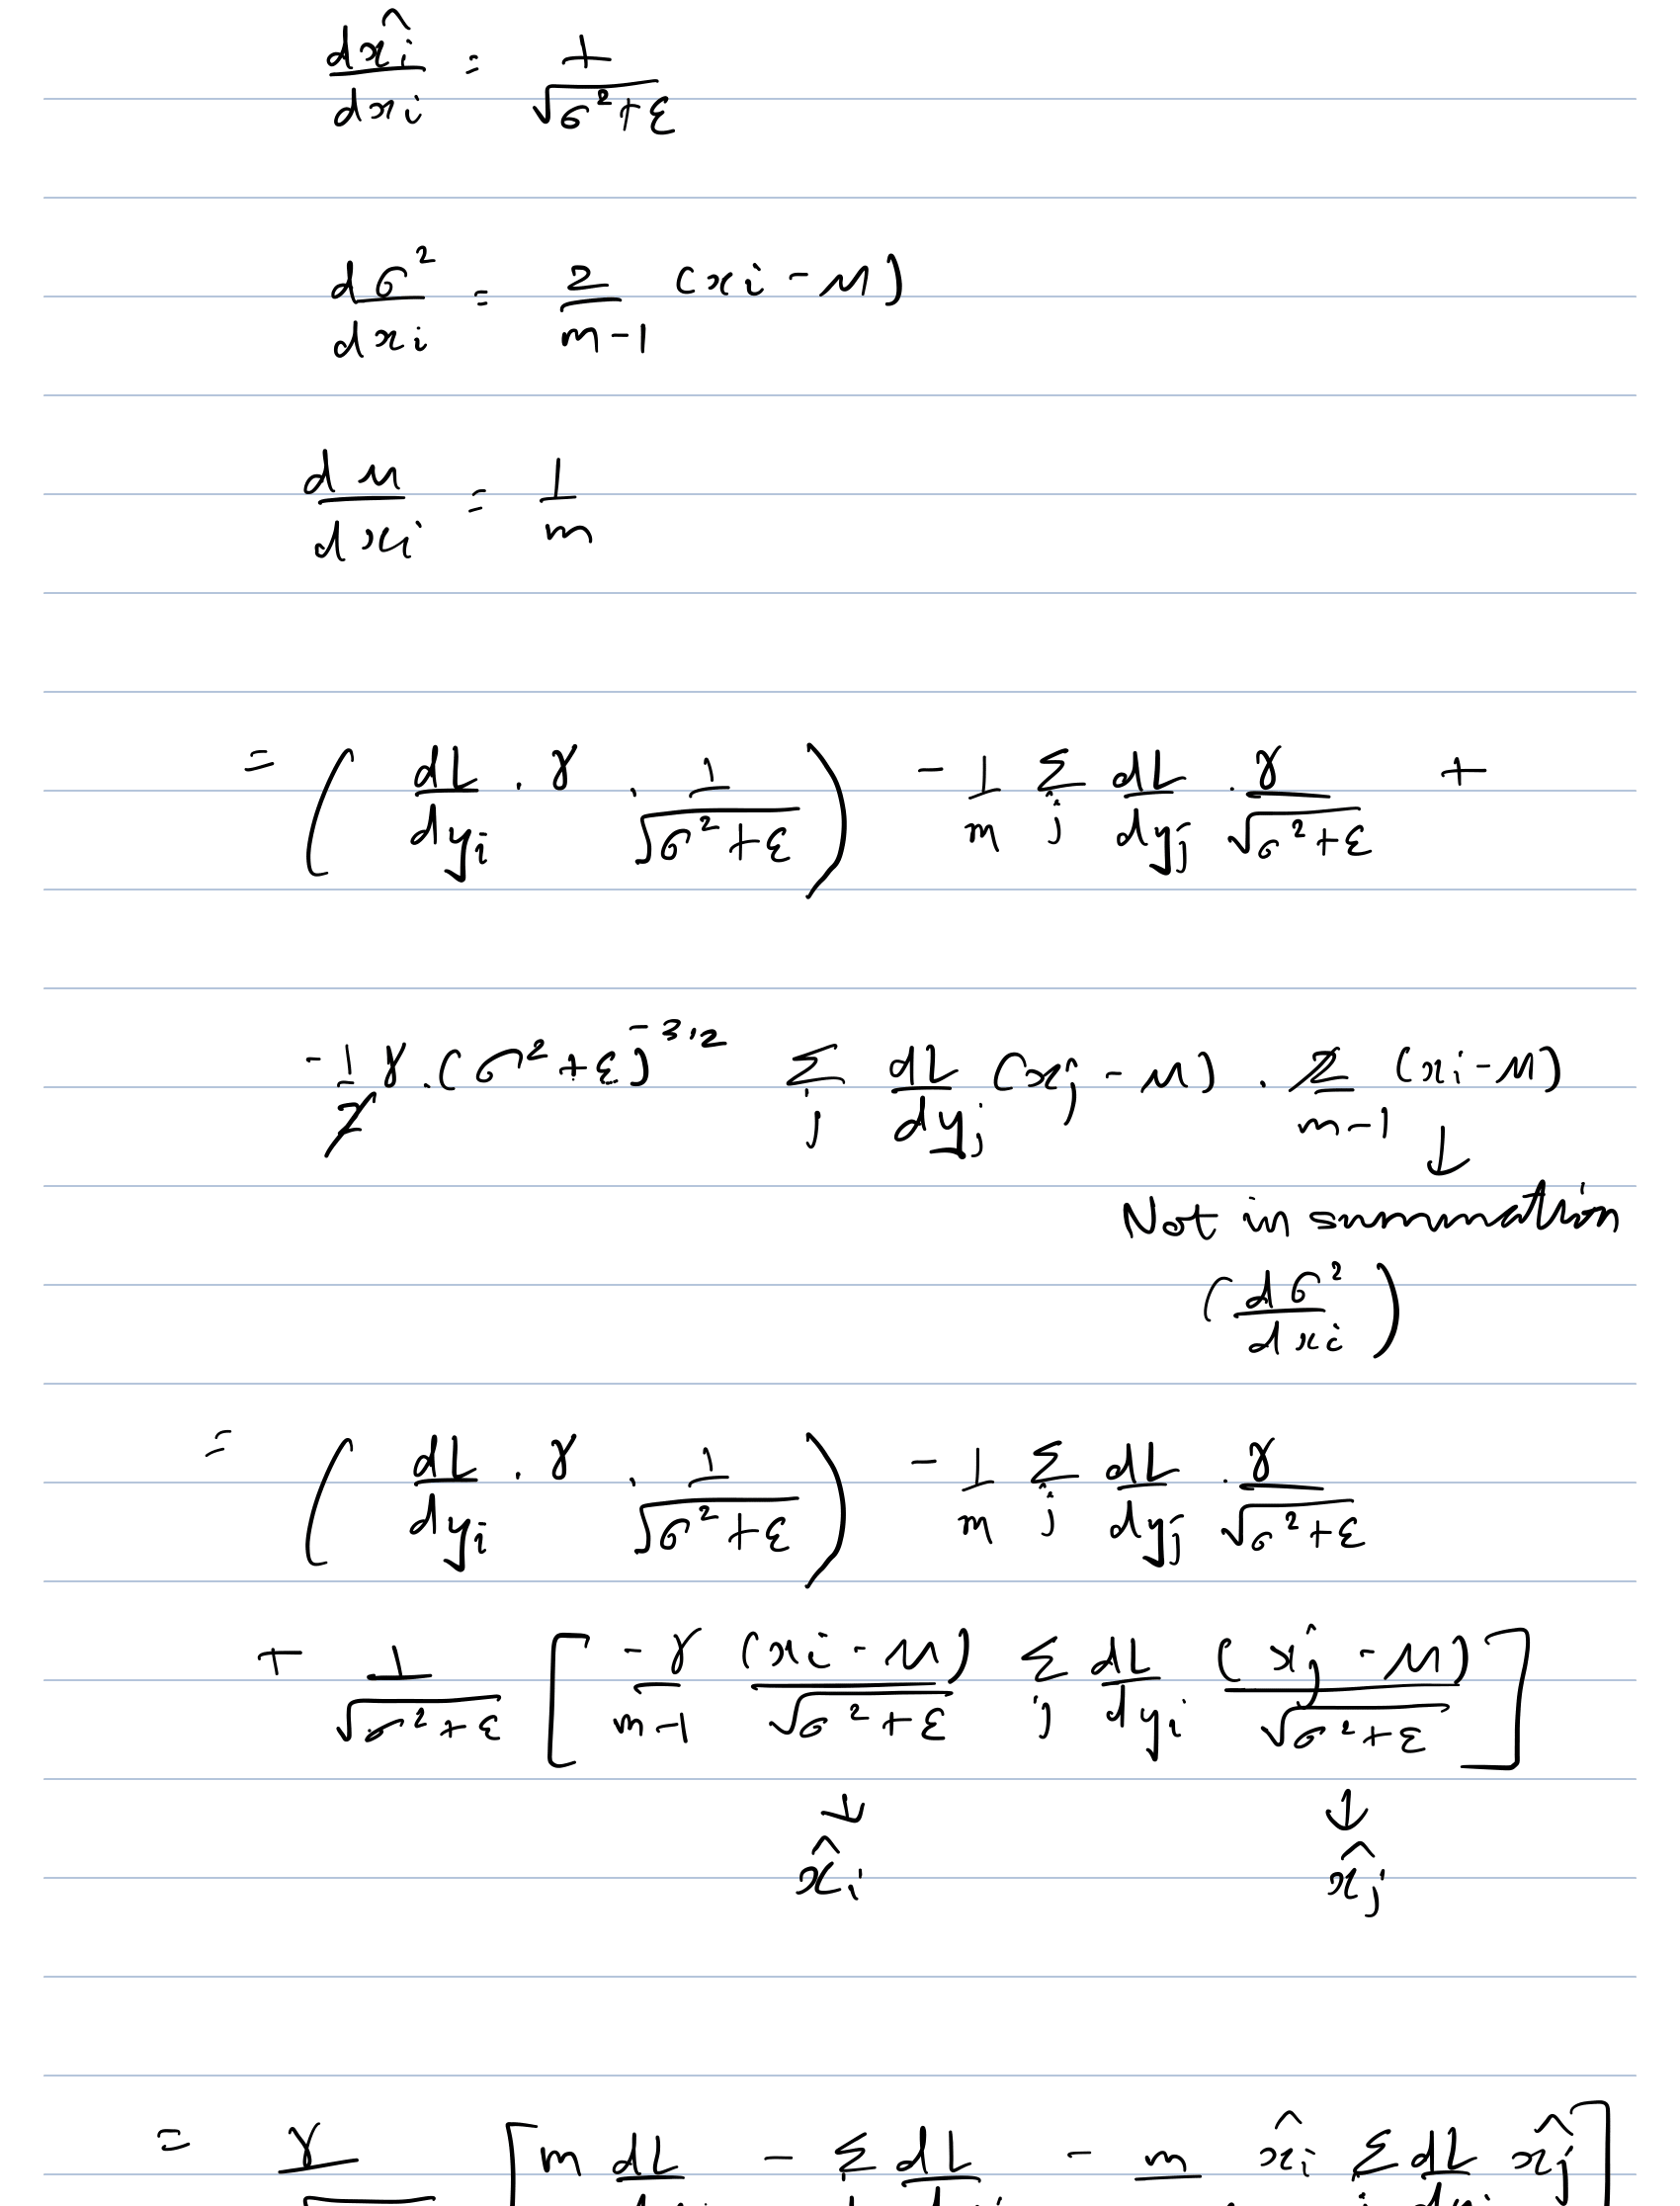 dx̂i/dxi = 1/√(σ²+ε)
dσ²/dxi = 2/(m-1) (xi - μ)
dμ/dxi = 1/m
= ( dL/dyi · γ · 1/√(σ²+ε) ) - 1/m Σj dL/dyj · γ/√(σ²+ε) +
-1/2 γ · (σ²+ε)^-3/2 Σj dL/dyj (xj - μ) · 2/(m-1) (xi - μ)
↓
Not in summation
(dσ²/dxi)
= ( dL/dyi · γ · 1/√(σ²+ε) ) - 1/m Σj dL/dyj · γ/√(σ²+ε)
+ 1/√(σ²+ε) [ -γ/(m-1) (xi - μ)/√(σ²+ε) Σj dL/dyi (xj - μ)/√(σ²+ε) ]
↓ ↓
x̂i x̂j
= γ [ m dL - Σ dL - m x̂i Σ dL x̂j ]